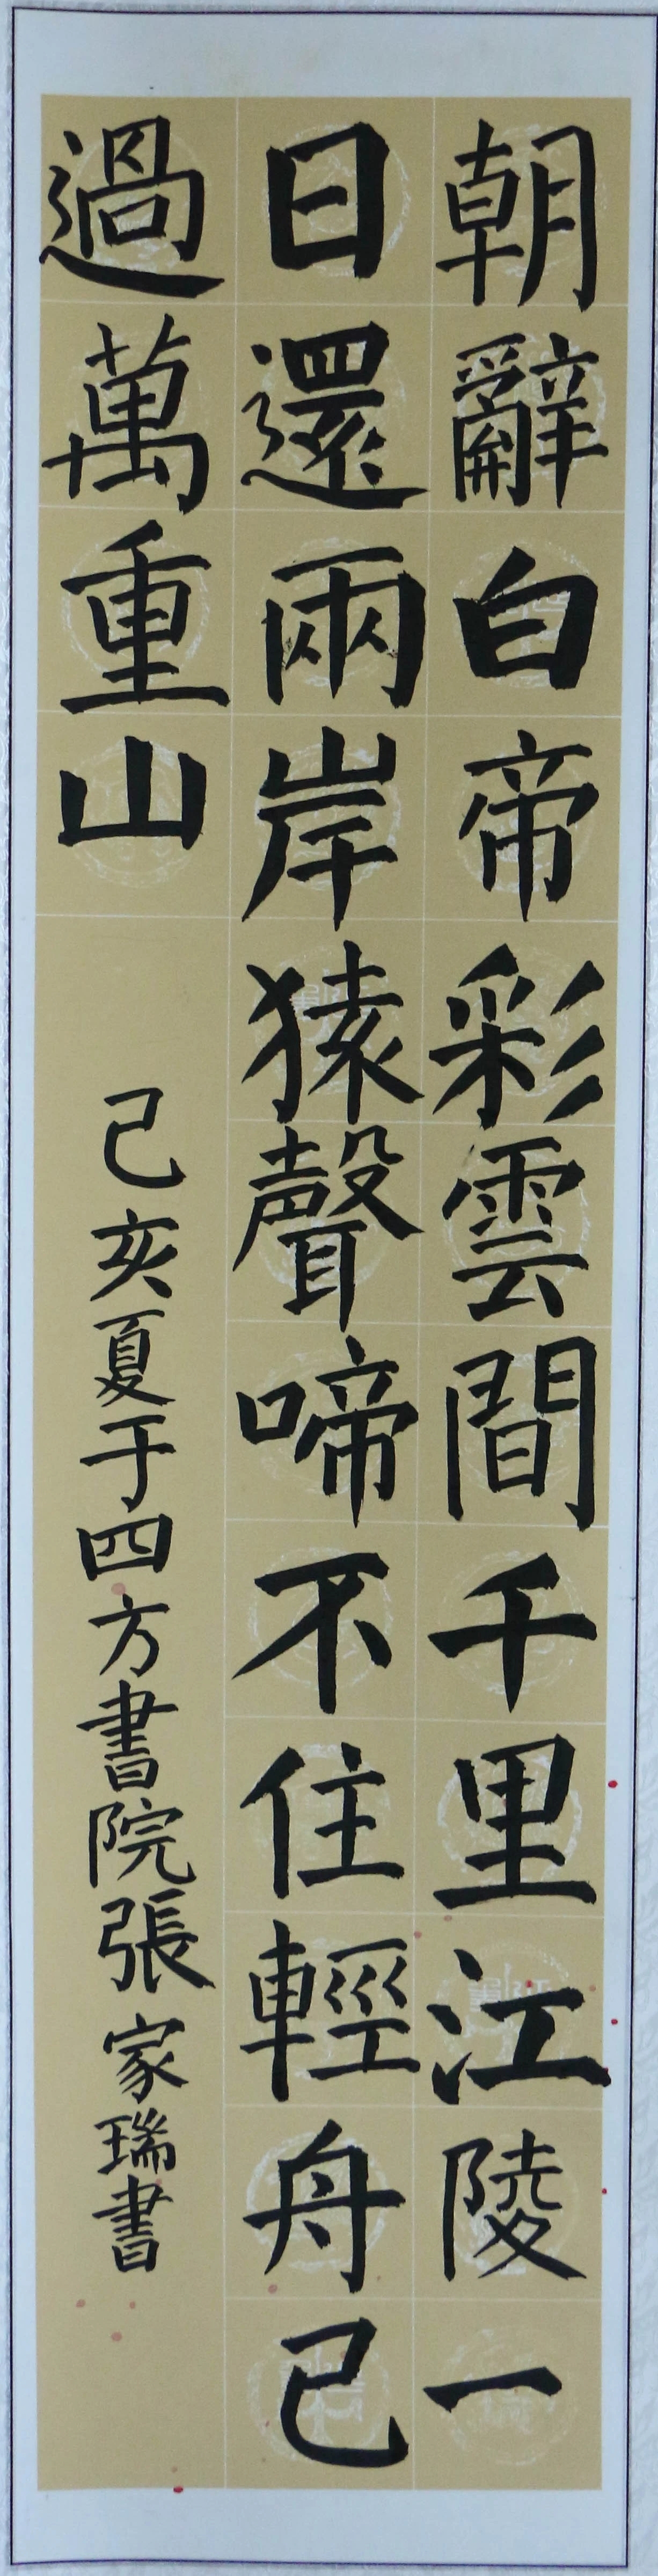 朝辭白帝彩雲間千里江陵一
日還兩岸猿聲啼不住輕舟已
過萬重山
己亥夏于四方書院張家瑞書